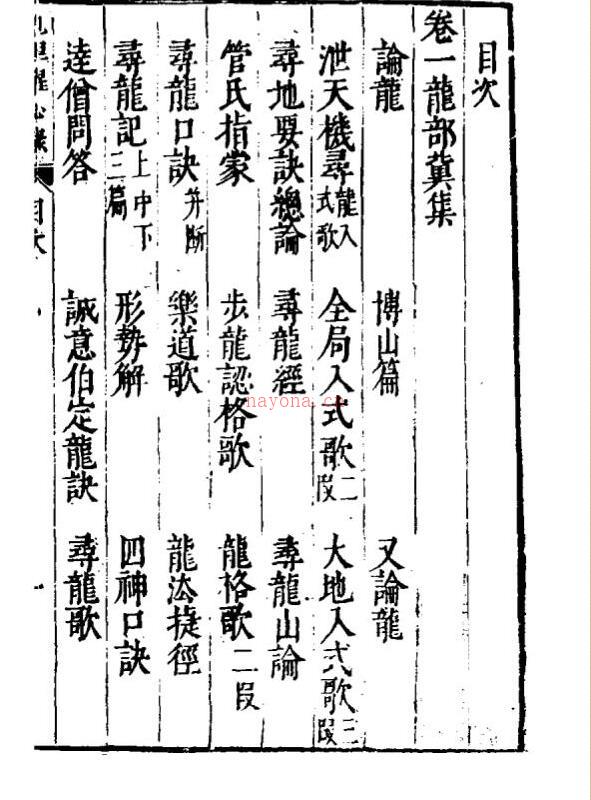 目次
卷一龍部冀集
論龍 博山篇 又論龍
泄天機尋龍入式歌 全局入式歌二段 大地入式歌三段
尋地要訣總論 尋龍經 尋龍山論
管氏指蒙 步龍認格歌 龍格歌二段
尋龍口訣并斷 樂道歌 龍法捷徑
尋龍記上中下三篇 形勢解 四神口訣
逹僧問答 誠意伯定龍訣 尋龍歌
目次
nayona.cn